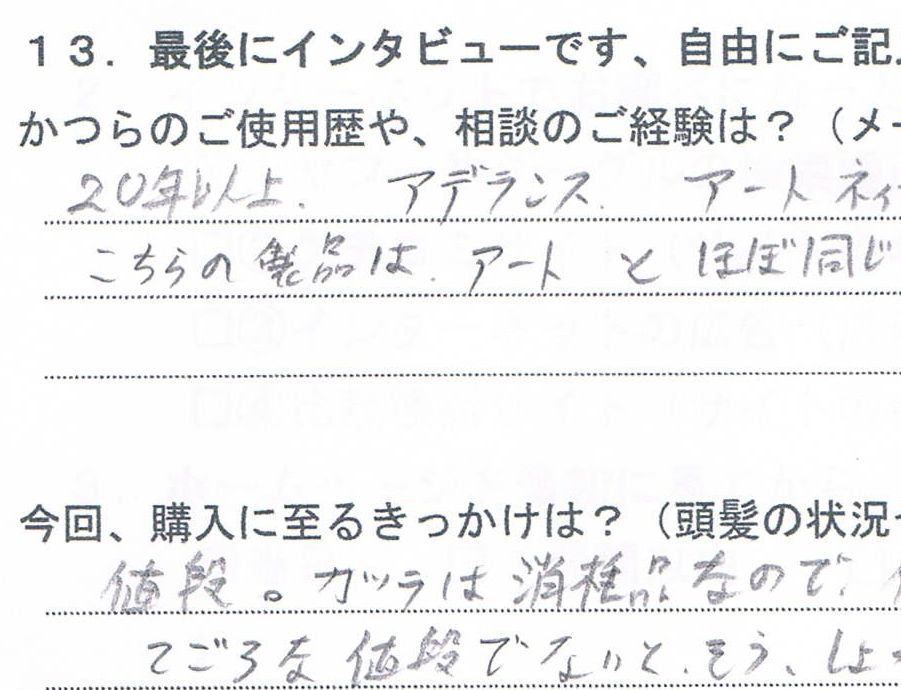 13．最後にインタビューです、自由にご記
かつらのご使用歴や、相談のご経験は？（メー
20年以上. アデランス. アートネイ
こちらの製品は. アートとほぼ同じ
今回、購入に至るきっかけは？（頭髪の状況
値段。カツラは消耗品なので、
てごろな値段でないと、そう、しょ